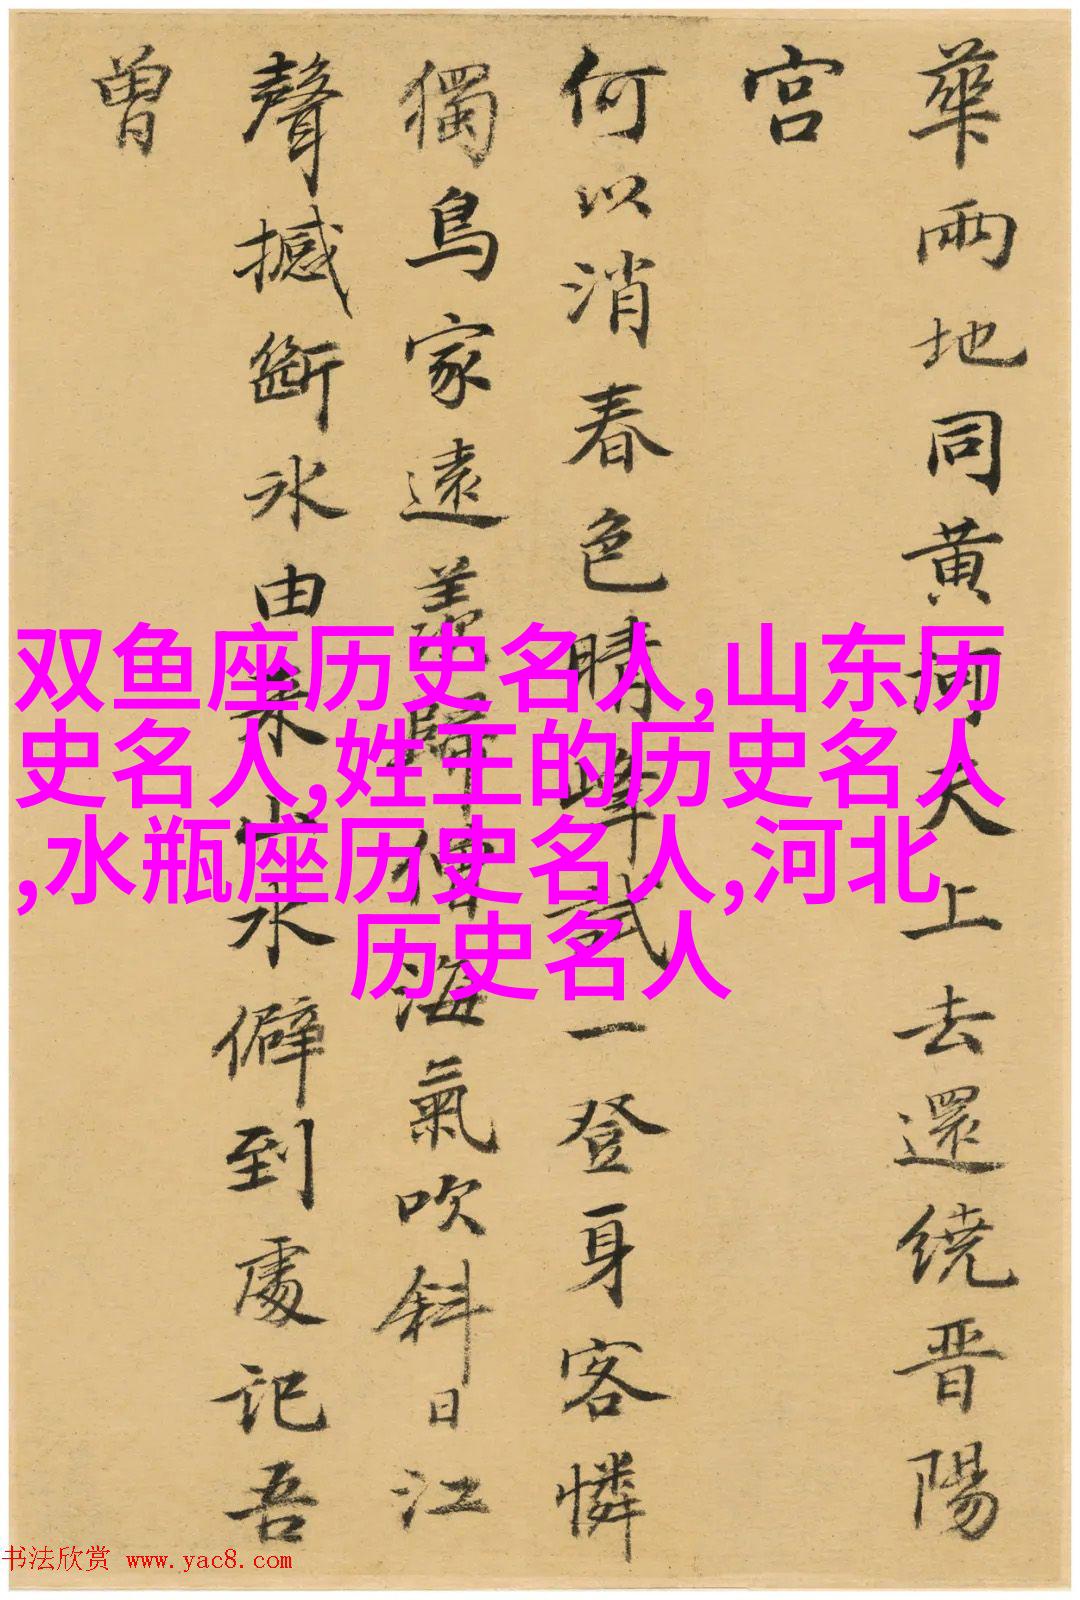 華兩地同黄河天上去還繞晋陽
宫
何以消春色晴峰試一登身客憐
獨鳥家遠羨歸僧海氣吹斜日江
聲撼斷冰由来山水僻到處記吾
曾
双鱼座历史名人,山东历
史名人,姓王的历史名人
,水瓶座历史名人,河北
历史名人
书法欣赏 www.yac8.com